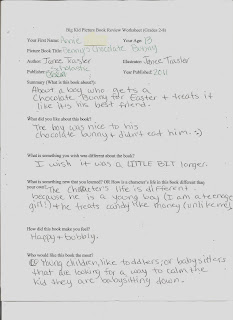 Big Kid Picture Book Review Worksheet (Grades 2-8)
Your First Name: Annie Your Age: 13
Picture Book Title: Danny's Chocolate Bunny
Author: Janee Trasler Illustrator: Janee Trasler
Publisher: Scholastic Year Published: 2011
Summary (What is this book about?):
About a boy who gets a
Chocolate Bunny for Easter + treats it
like it's his best friend.
What did you like about this book?
The boy was nice to his
chocolate bunny + didn't eat him. :)
What is something you wish was different about the book?
I wish it was a LITTLE BIT longer.
What is something new that you learned? OR How is a character's life in this book different than
your own? The character's life is different
because he is a young boy (I am a teenage
girl!) + he treats candy like money (unlike me).
How did this book make you feel?
Happy + bubbly.
Who would like this book the most?
Young children, like toddlers; or babysitters
that are looking for a way to calm the
kid they are babysitting down.